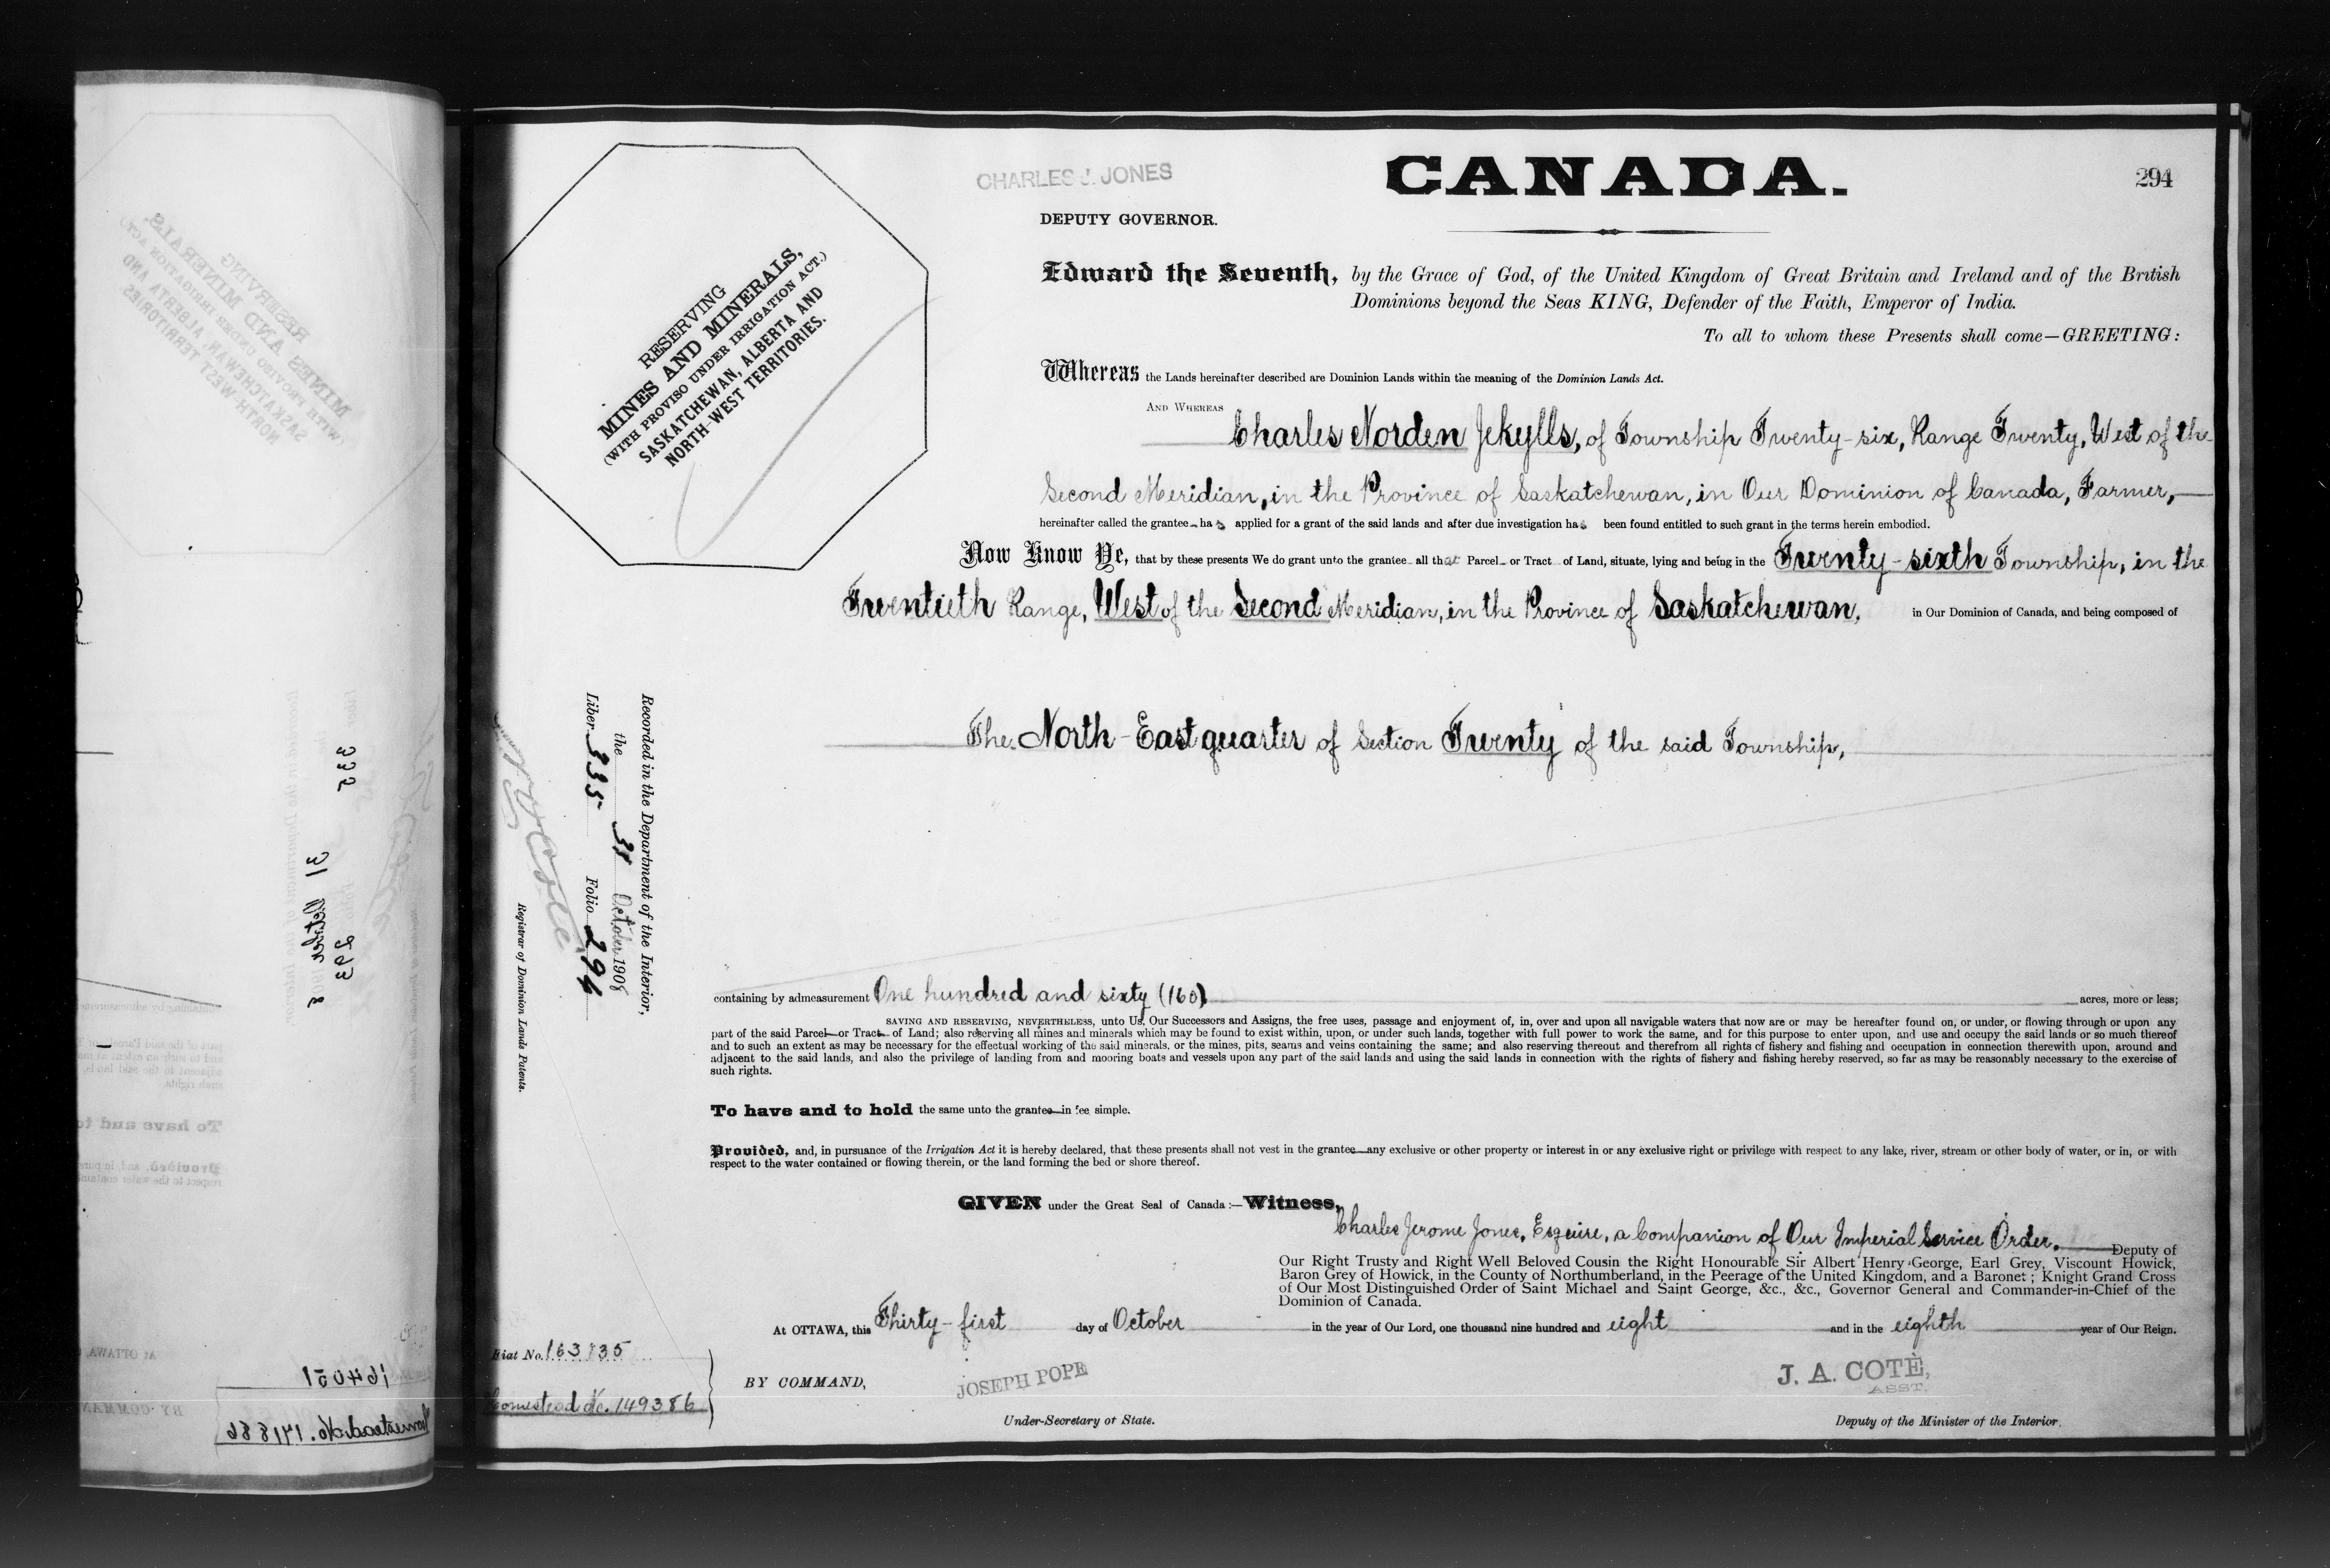 CHARLES J. JONES
CANADA.
294
DEPUTY GOVERNOR.
RESERVING
MINES AND MINERALS,
(WITH PROVISO UNDER IRRIGATION ACT.)
SASKATCHEWAN, ALBERTA AND
NORTH-WEST TERRITORIES.
Edward the Seventh, by the Grace of God, of the United Kingdom of Great Britain and Ireland and of the British
Dominions beyond the Seas KING, Defender of the Faith, Emperor of India.
To all to whom these Presents shall come—GREETING:
Whereas the Lands hereinafter described are Dominion Lands within the meaning of the Dominion Lands Act.
AND WHEREAS Charles Norden Jekylls, of Township Twenty-six, Range Twenty, West of the
Second Meridian, in the Province of Saskatchewan, in Our Dominion of Canada, Farmer,
hereinafter called the grantee has applied for a grant of the said lands and after due investigation has been found entitled to such grant in the terms herein embodied.
Now Know Ye, that by these presents We do grant unto the grantee all that Parcel or Tract of Land, situate, lying and being in the Twenty-sixth Township, in the
Twentieth Range, West of the Second Meridian, in the Province of Saskatchewan, in Our Dominion of Canada, and being composed of
The North-East quarter of Section Twenty of the said Township,
Recorded in the Department of the Interior,
the 31 October 1908
Liber 335 Folio 294
Registrar of Dominion Lands Patents.
containing by admeasurement One hundred and sixty (160) acres, more or less;
SAVING AND RESERVING, NEVERTHELESS, unto Us, Our Successors and Assigns, the free uses, passage and enjoyment of, in, over and upon all navigable waters that now are or may be hereafter found on, or under, or flowing through or upon any
part of the said Parcel or Tract of Land; also reserving all mines and minerals which may be found to exist within, upon, or under such lands, together with full power to work the same, and for this purpose to enter upon, and use and occupy the said lands or so much thereof
and to such an extent as may be necessary for the effectual working of the said minerals, or the mines, pits, seams and veins containing the same; and also reserving thereout and therefrom all rights of fishery and fishing and occupation in connection therewith upon, around and
adjacent to the said lands, and also the privilege of landing from and mooring boats and vessels upon any part of the said lands and using the said lands in connection with the rights of fishery and fishing hereby reserved, so far as may be reasonably necessary to the exercise of
such rights.
To have and to hold the same unto the grantee in fee simple.
Provided, and, in pursuance of the Irrigation Act it is hereby declared, that these presents shall not vest in the grantee any exclusive or other property or interest in or any exclusive right or privilege with respect to any lake, river, stream or other body of water, or in, or with
respect to the water contained or flowing therein, or the land forming the bed or shore thereof.
GIVEN under the Great Seal of Canada:—Witness,
Charles Jerome Jones, Esquire, a Companion of Our Imperial Service Order, Deputy of
Our Right Trusty and Right Well Beloved Cousin the Right Honourable Sir Albert Henry George, Earl Grey, Viscount Howick,
Baron Grey of Howick, in the County of Northumberland, in the Peerage of the United Kingdom, and a Baronet; Knight Grand Cross
of Our Most Distinguished Order of Saint Michael and Saint George, &c., &c., Governor General and Commander-in-Chief of the
Dominion of Canada.
At OTTAWA, this Thirty-first day of October in the year of Our Lord, one thousand nine hundred and eight and in the eighth year of Our Reign.
Fiat No. 163735
Homestead No. 149386
BY COMMAND,
JOSEPH POPE
Under-Secretary of State.
J. A. COTÉ,
ASST.
Deputy of the Minister of the Interior.